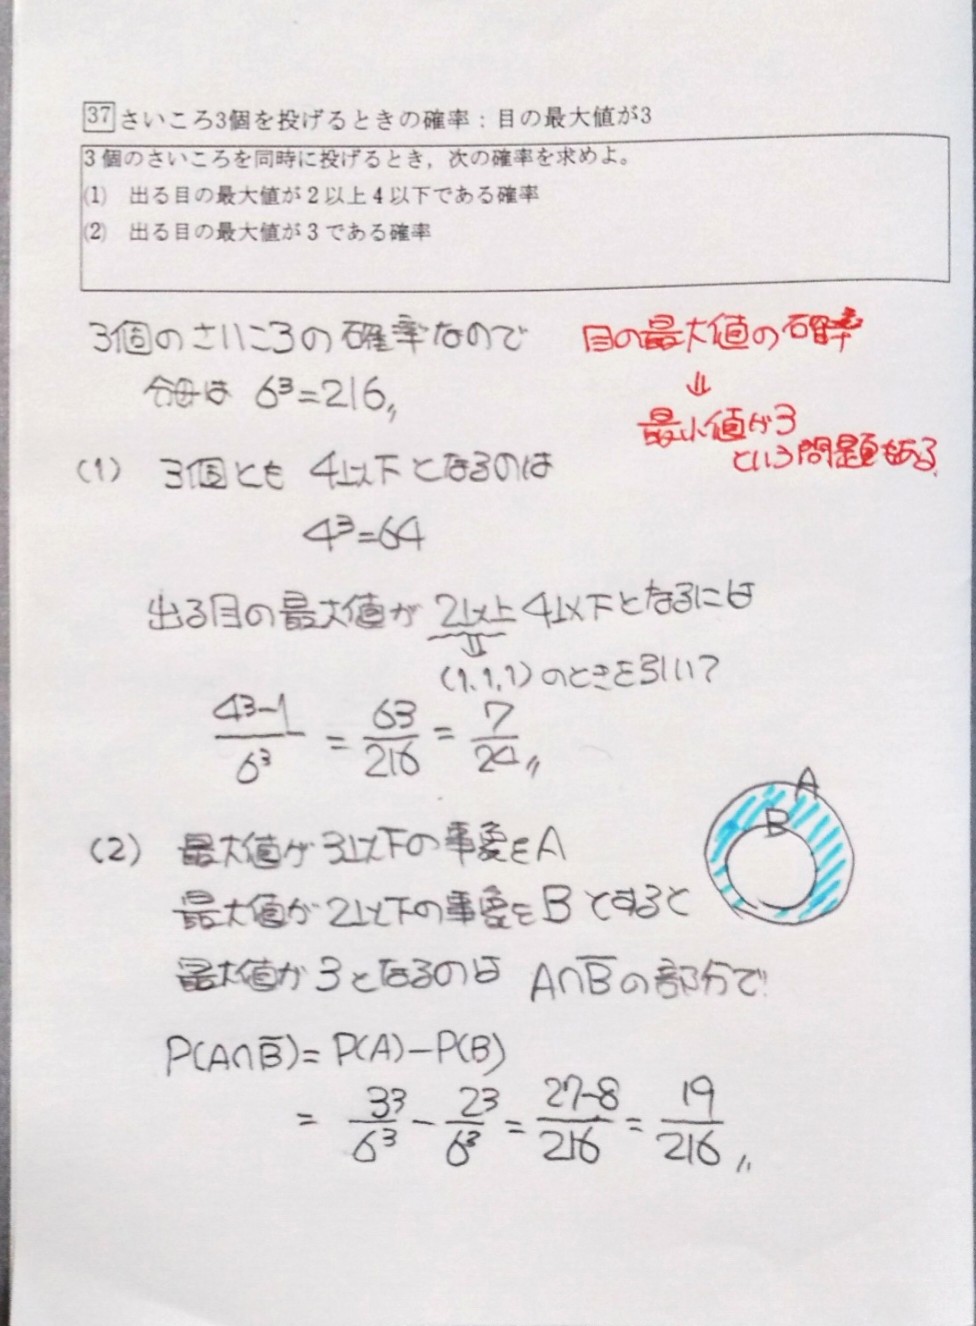 37 さいころ3個を投げるときの確率：目の最大値が3
3個のさいころを同時に投げるとき，次の確率を求めよ。
(1) 出る目の最大値が2以上4以下である確率
(2) 出る目の最大値が3である確率
3個のさいころの確率なので
分母は 6³=216〃
目の最大値の確率
⇓
最小値が3
という問題もある
(1) 3個とも 4以下となるのは
4³=64
出る目の最大値が 2以上 4以下となるには
⇓
(1,1,1)のときを引いて
4³-1/6³ = 63/216 = 7/24〃
A
B
(2) 最大値が3以下の事象をA
最大値が2以下の事象をBとすると
最大値が3となるのは A∩B̅の部分で
P(A∩B̅)=P(A)-P(B)
= 3³/6³ - 2³/6³ = 27-8/216 = 19/216〃